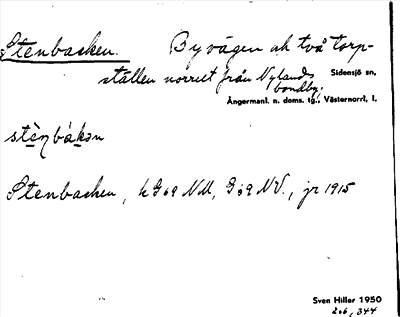 Stenbacken. Byvägen ak två torp-
ställen norrut från Nylands Sidensjö sn,
bondby.
Ångermanl. n. doms. lg., Västernorrl. l.
stènbákən
Stenbacken, k G69 NM, G:9 NV., jr 1915
Sven Hiller 1950
206, 344